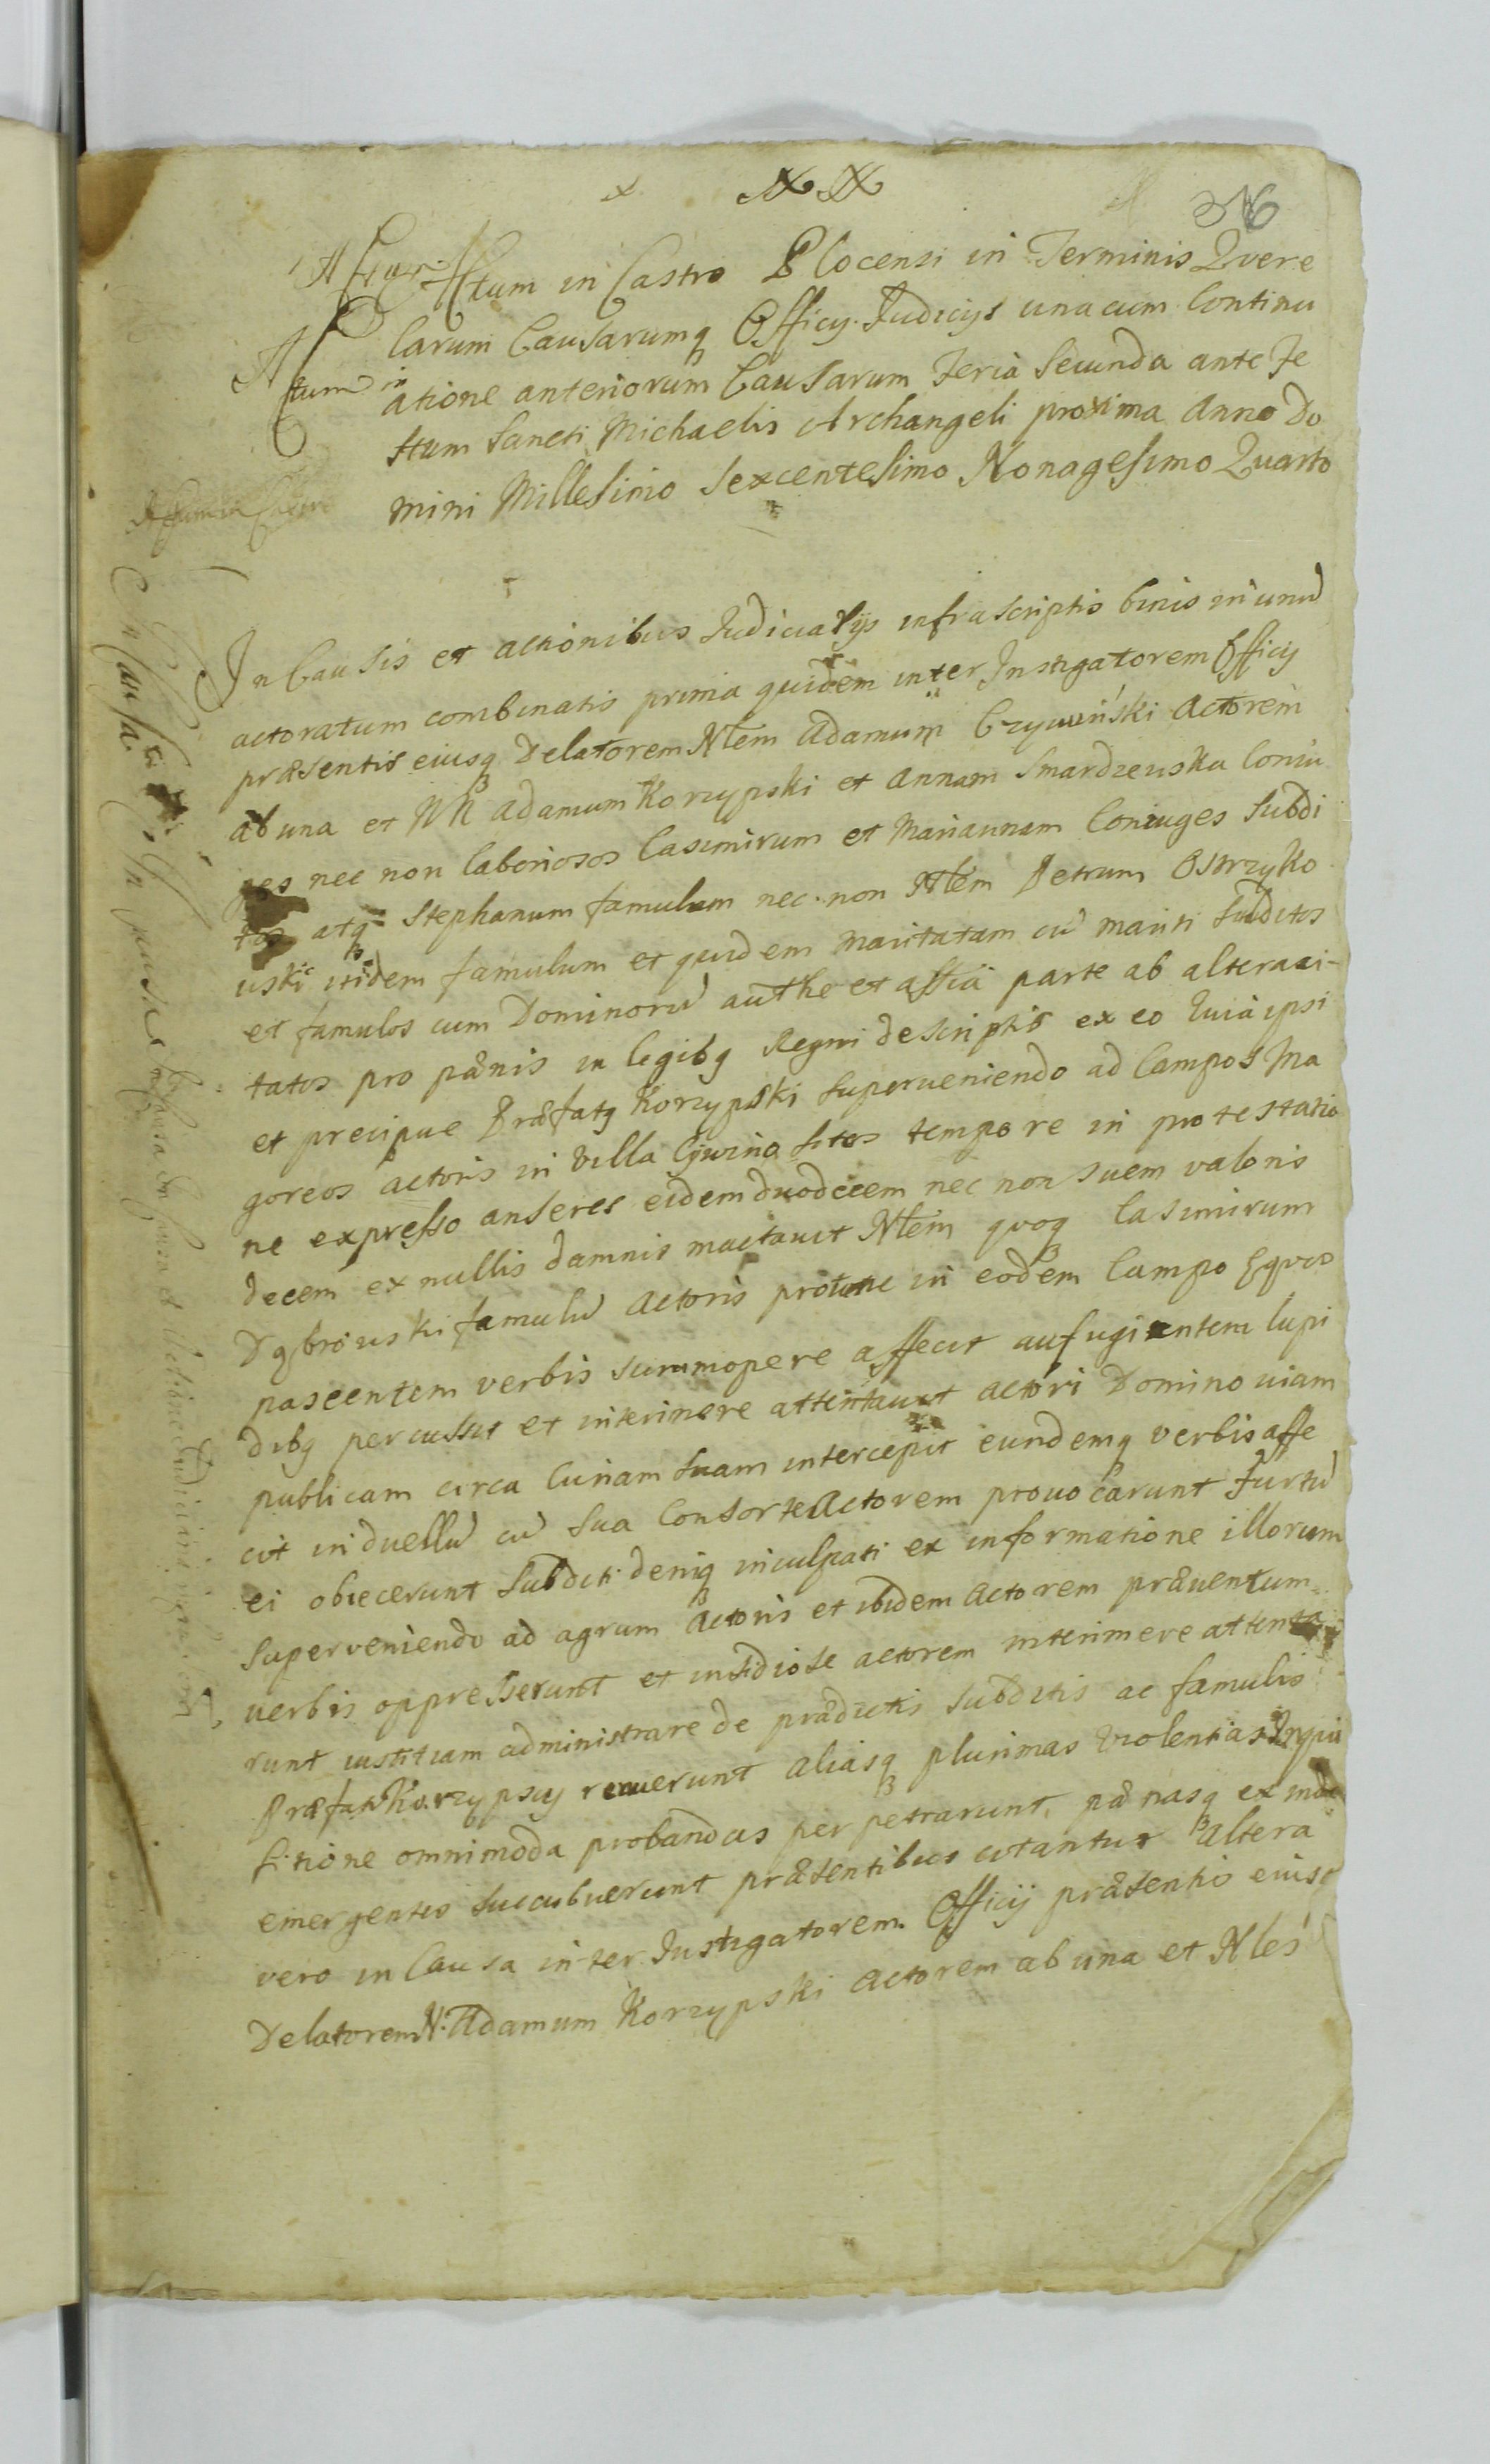 36
Actum in Castro Plocensi in Terminis Quere
larum Causarumq Officy Judicys unacum Continu
Actum in
atione anteriorum Causarum Feria Secunda ante Fe
stum Sancti Michaelis Archangeli proxima Anno Do
mini Millesimo Sexcentesimo Nonagesimo Quarto
In Causis et actionibus Judicialÿs infrascriptis binis in unū
actoratum combinatis prima quidem inter Instigatorem Officij
præsentis eiusq Delatorem Nlem Adamum Czywiński Actorem
ab una et NN Adamum Korzypski et Annam Smardzewska Coniu
ges nec non laboriosos Casimirum et Mariannam Coniuges Subdi
tos atq Stephanum famulum nec non Nlem Petrum Ostrzyko
uski itidem famulum et quidem maritatam cū mariti subditos
et famulos cum Dominorū authe et assīa parte ab altera ci-
tatos pro pænis in legibq Regni descriptis ex eo Quia ipsi
et precipue Præfatq Korzypski superveniendo ad Campos Ma
goreos actoris in Villa sitos tempore in protestatio
ne expresso anseres eidem duodecem nec non suem valoris
decem ex nullis damnis mactavit Nlem quoq Casimirum
Dąbrowski famulū Actoris protunc in eodem Campo Equos
pascentem verbis summopere affecit aufugientem lapi
dibq percussit et interimere attentavit actori Domino viam
publicam circa Curiam suam intercepit eundemq verbis affe
cit in duellū cū sua Consorte Actorem provocarunt Furtū
ei obiecerunt Subditi deniq inculpati ex informatione illorum
superveniendo ad agrum Actoris et ibidem Actorem præventum
verbis oppresserunt et insidiose actorem interimere attenta
runt iustitiam administrare de prædictis subditis ac famulis
Præfati Korzypscy renuerunt aliasq plurimas violentias Inqui
sitione omnimoda probandas perpetrarunt, pænasq exinde
emergentes succubuerunt præsentibus citantur Altera
vero in Causa inter Instigatorem Officij præsentis eiusq
Delatorem N. Adamum Korzypski Actorem ab una et Nles